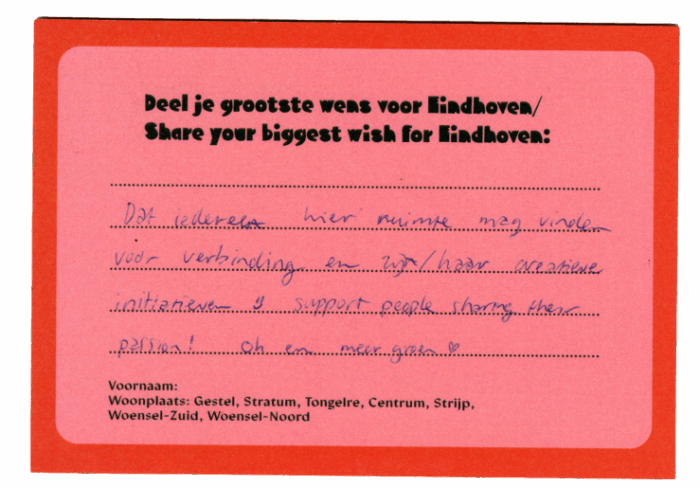 Deel je grootste wens voor Eindhoven/
Share your biggest wish for Eindhoven:
Dat iedereen hier ruimte mag vinden
voor verbinding en zijn/haar creatieve
initiatieven support people sharing their
passion! Oh en meer groen ♡
Voornaam:
Woonplaats: Gestel, Stratum, Tongelre, Centrum, Strijp,
Woensel-Zuid, Woensel-Noord